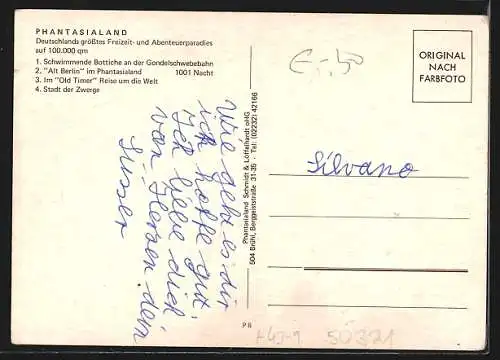 PHANTASIALAND
Deutschlands größtes Freizeit- und Abenteuerparadies
auf 100.000 qm
1. Schwimmende Bottiche an der Gondelschwebebahn
2. "Alt Berlin" im Phantasialand 1001 Nacht
3. Im "Old Timer" Reise um die Welt
4. Stadt der Zwerge
Wie geht es dir
ich hoffe gut.
Ich liebe dich
von Herzen dein
Susser
Phantasialand Schmidt & Löffelhardt oHG
504 Brühl, Berggeiststraße 31-35 - Tel: (02232) 42166
ORIGINAL
NACH
FARBFOTO
Silvano
PR
50321